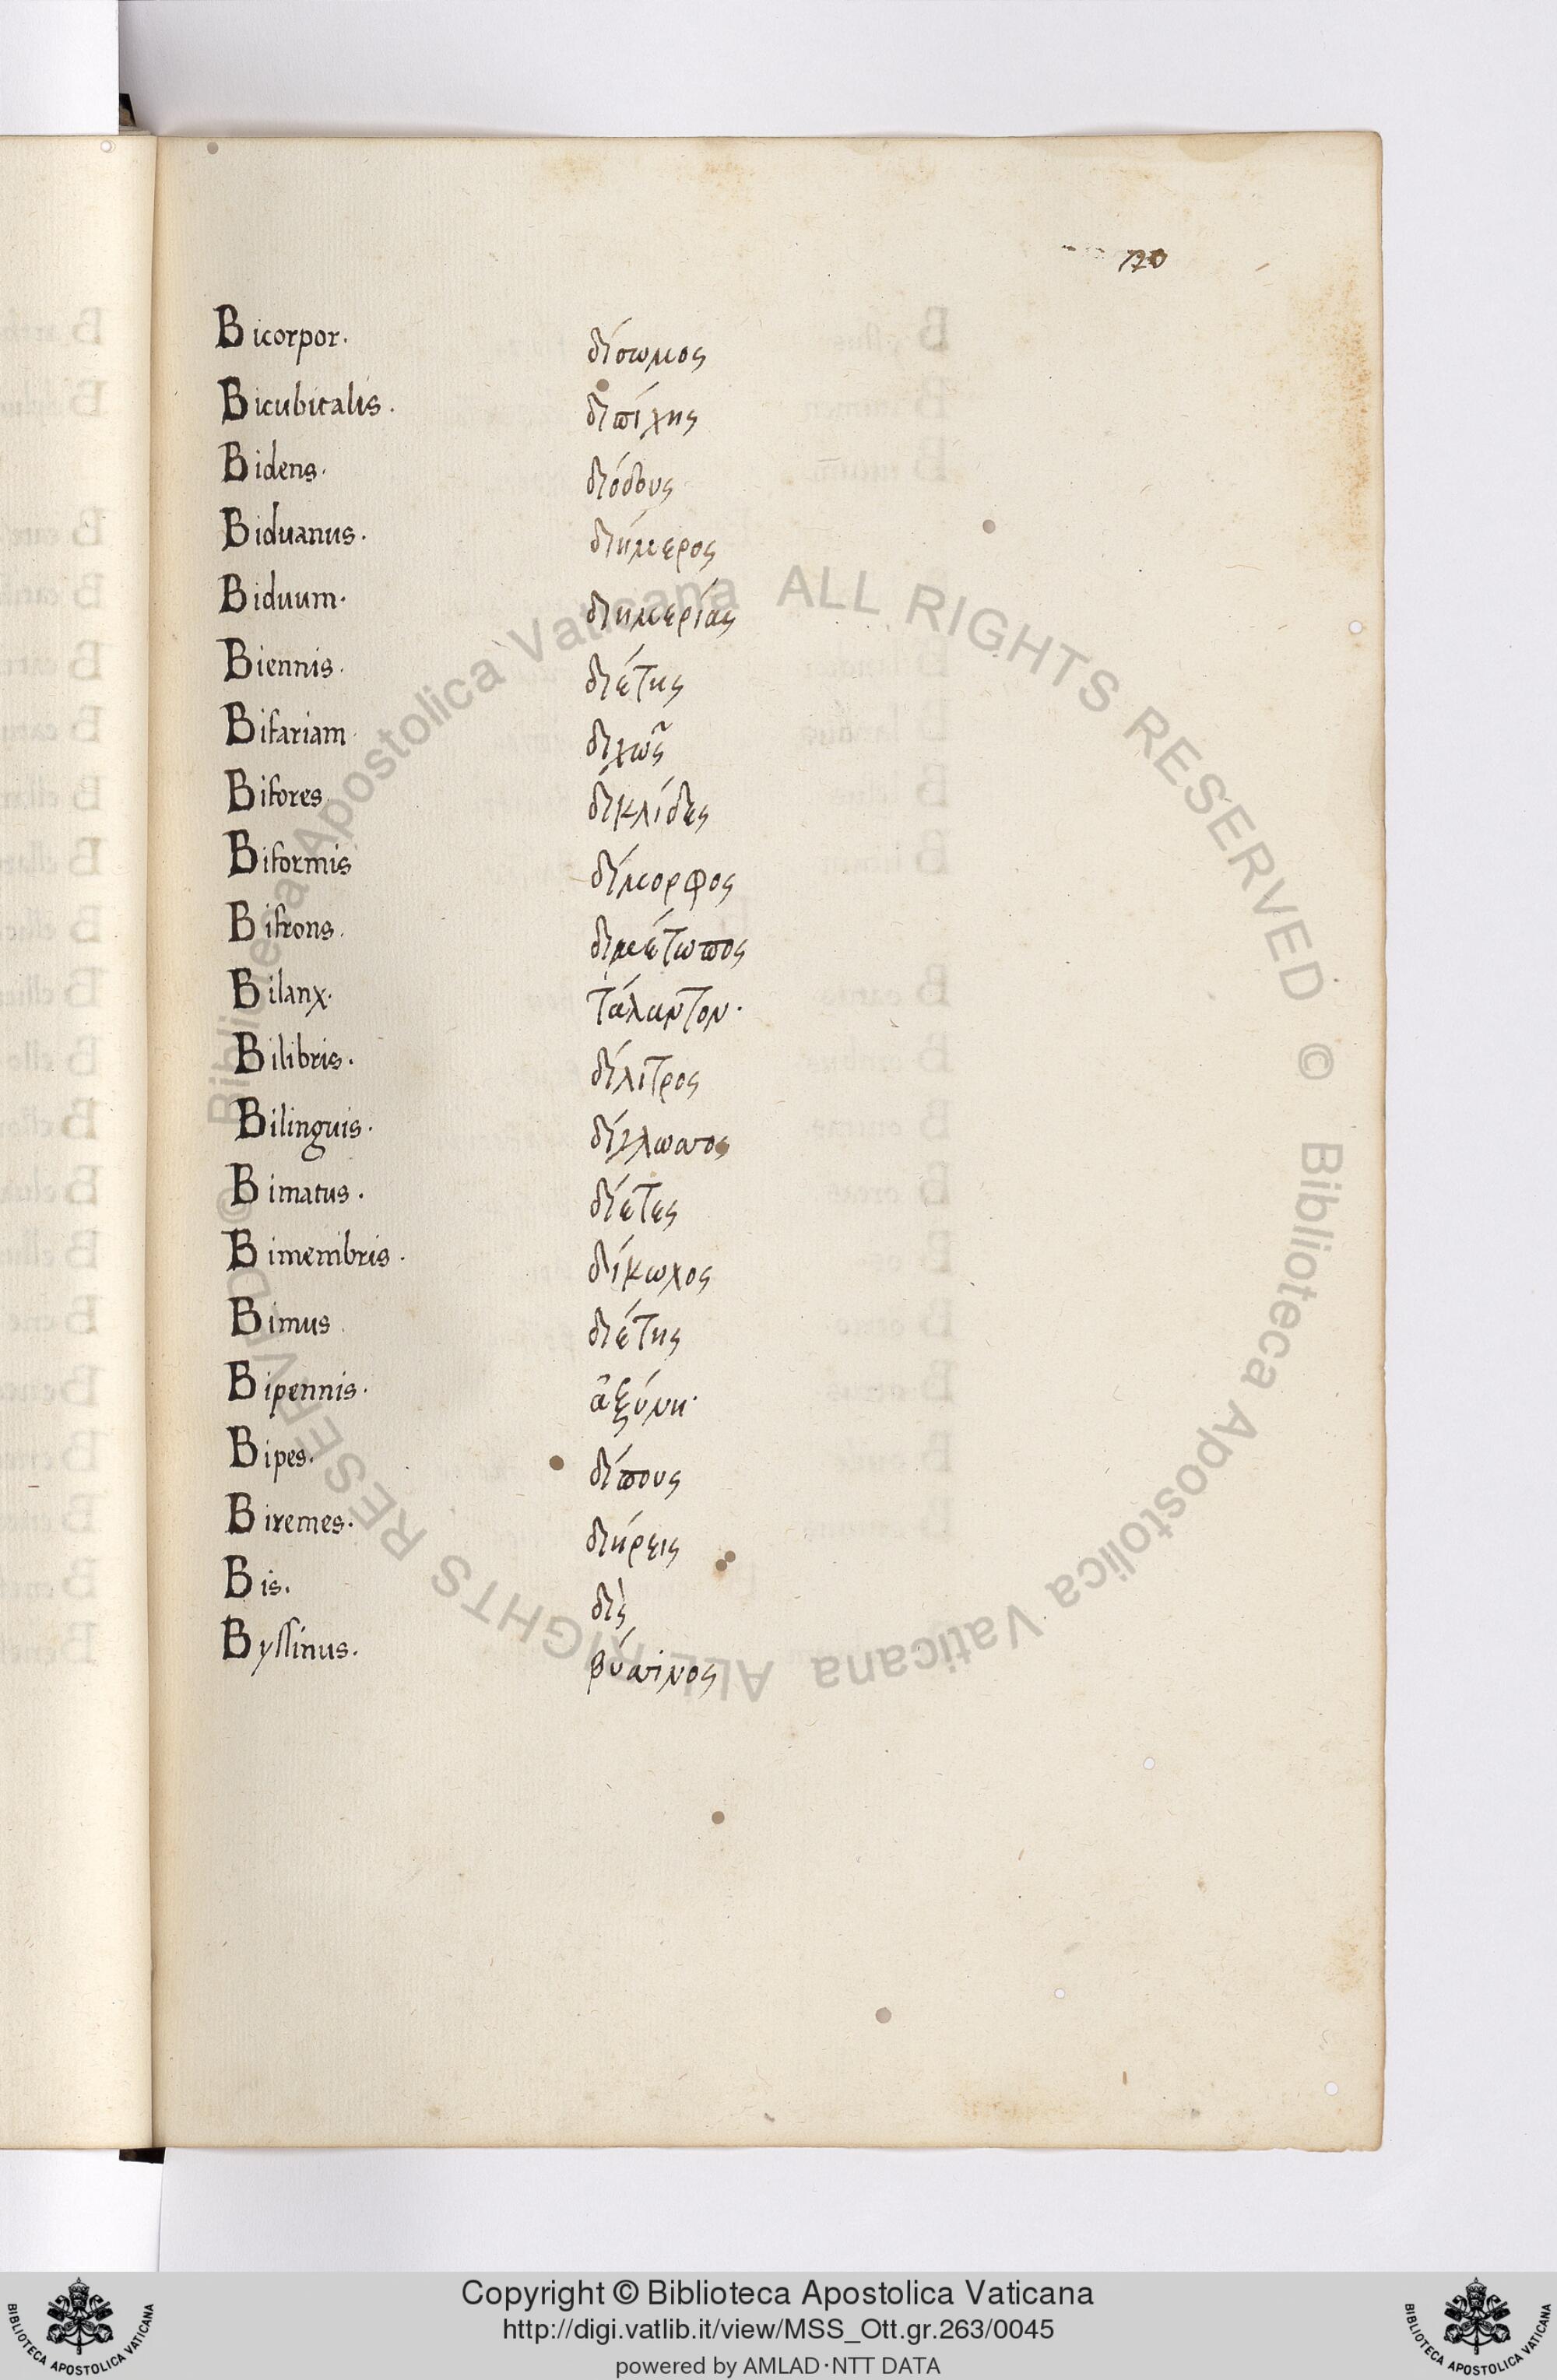 120
Bicorpor. δίσωμος
Bicubitalis. διπίχης
Bidens. διόδους
Biduanus. διήμερος
Biduum. διημερίας
Biennis. διέτης
Bifariam. διχῶς
Bifores δικλίδες
Biformis δίμορφος
Bifrons. διμέτωπος
Bilanx. τάλαντον.
Bilibris. δίλιτρος
Bilinguis. δίγλωσσος
Bimatus. δίετες
Bimembris. δίκωλος
Bimus διέτης
Bipennis. ἀξύνη.
Bipes. δίπους
Biremes. διήρεις
Bis. δὶς
Byssinus. βύσσινος
Biblioteca Apostolica Vaticana ALL RIGHTS RESERVED © Biblioteca Apostolica Vaticana ALL RIGHTS RESERVED ©
Copyright © Biblioteca Apostolica Vaticana
http://digi.vatlib.it/view/MSS_Ott.gr.263/0045
powered by AMLAD·NTT DATA
BIBLIOTECA APOSTOLICA VATICANA
BIBLIOTECA APOSTOLICA VATICANA